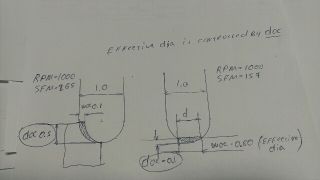 Effective dia is controlled by doc
RPM=1000
SFM=265
1.0
woc 0.1
doc 0.5
RPM=1000
SFM=157
1.0
d
woc=0.60 (Effective
dia
doc=0.1